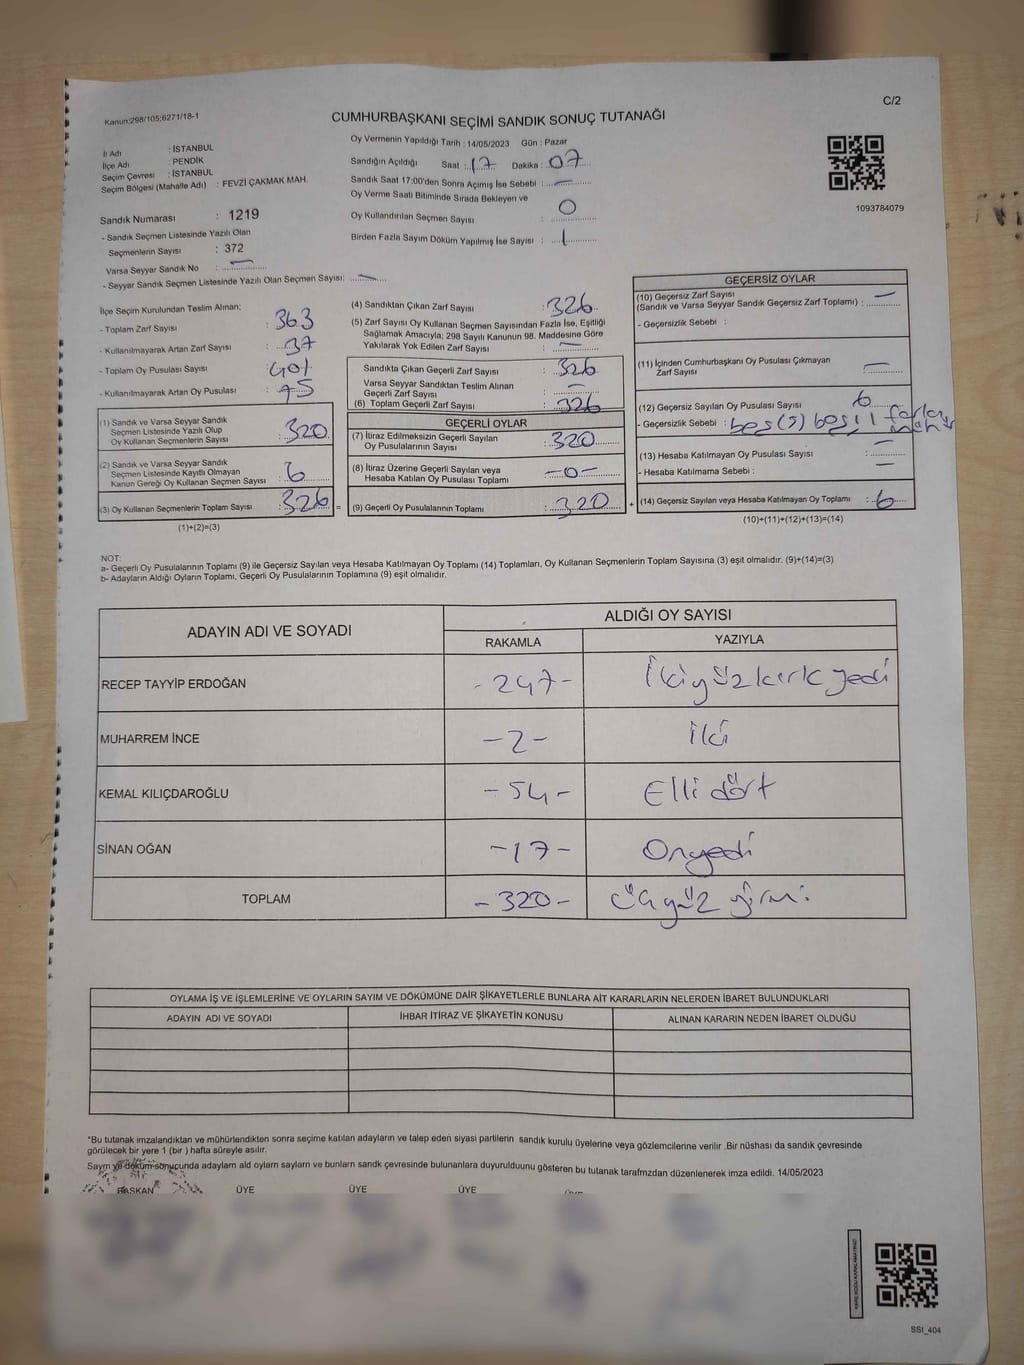 C/2
Kanun:298/105;6271/18-1
CUMHURBAŞKANI SEÇİMİ SANDIK SONUÇ TUTANAĞI
İl Adı : İSTANBUL
İlçe Adı : PENDİK
Seçim Çevresi : İSTANBUL
Seçim Bölgesi (Mahalle Adı) : FEVZİ ÇAKMAK MAH.
Sandık Numarası : 1219
- Sandık Seçmen Listesinde Yazılı Olan
Seçmenlerin Sayısı : 372
Varsa Seyyar Sandık No : —
- Seyyar Sandık Seçmen Listesinde Yazılı Olan Seçmen Sayısı: —
Oy Vermenin Yapıldığı Tarih : 14/05/2023 Gün : Pazar
Sandığın Açıldığı Saat : 17 Dakika : 07
Sandık Saat 17:00'den Sonra Açımış İse Sebebi : —
Oy Verme Saati Bitiminde Sırada Bekleyen ve
Oy Kullandırılan Seçmen Sayısı : 0
Birden Fazla Sayım Döküm Yapılmış İse Sayısı : 1
1093784079
İlçe Seçim Kurulundan Teslim Alınan;
- Toplam Zarf Sayısı : 363
- Kullanılmayarak Artan Zarf Sayısı : 37
- Toplam Oy Pusulası Sayısı : 401
- Kullanılmayarak Artan Oy Pusulası : 75
(1) Sandık ve Varsa Seyyar Sandık
Seçmen Listesinde Yazılı Olup
Oy Kullanan Seçmenlerin Sayısı : 320
(2) Sandık ve Varsa Seyyar Sandık
Seçmen Listesinde Kayıtlı Olmayan
Kanun Gereği Oy Kullanan Seçmen Sayısı : 6
(3) Oy Kullanan Seçmenlerin Toplam Sayısı : 326 =
(1)+(2)=(3)
(4) Sandıktan Çıkan Zarf Sayısı : 326
(5) Zarf Sayısı Oy Kullanan Seçmen Sayısından Fazla İse, Eşitliği
Sağlamak Amacıyla; 298 Sayılı Kanunun 98. Maddesine Göre
Yakılarak Yok Edilen Zarf Sayısı : —
Sandıkta Çıkan Geçerli Zarf Sayısı : 326
Varsa Seyyar Sandıktan Teslim Alınan
Geçerli Zarf Sayısı : —
(6) Toplam Geçerli Zarf Sayısı : 326
GEÇERLİ OYLAR
(7) İtiraz Edilmeksizin Geçerli Sayılan
Oy Pusulasının Sayısı : 320
(8) İtiraz Üzerine Geçerli Sayılan veya
Hesaba Katılan Oy Pusulası Toplamı : -0-
(9) Geçerli Oy Pusulalarının Toplamı : 320 +
GEÇERSİZ OYLAR
(10) Geçersiz Zarf Sayısı
(Sandık ve Varsa Seyyar Sandık Geçersiz Zarf Toplamı) : —
- Geçersizlik Sebebi :
(11) İçinden Cumhurbaşkanı Oy Pusulası Çıkmayan
Zarf Sayısı : —
(12) Geçersiz Sayılan Oy Pusulası Sayısı : 6
- Geçersizlik Sebebi : beş(5) boş, 1 farklı mühür
(13) Hesaba Katılmayan Oy Pusulası Sayısı : —
- Hesaba Katılmama Sebebi : —
(14) Geçersiz Sayılan veya Hesaba Katılmayan Oy Toplamı : 6
(10)+(11)+(12)+(13)=(14)
NOT:
a- Geçerli Oy Pusulalarının Toplamı (9) ile Geçersiz Sayılan veya Hesaba Katılmayan Oy Toplamı (14) Toplamları, Oy Kullanan Seçmenlerin Toplam Sayısına (3) eşit olmalıdır. (9)+(14)=(3)
b- Adayların Aldığı Oyların Toplamı, Geçerli Oy Pusulalarının Toplamına (9) eşit olmalıdır.
ADAYIN ADI VE SOYADI
ALDIĞI OY SAYISI
RAKAMLA YAZIYLA
RECEP TAYYİP ERDOĞAN -247- İkiyüzkırkyedi
MUHARREM İNCE -2- İki
KEMAL KILIÇDAROĞLU -54- Elli dört
SİNAN OĞAN -17- Onyedi
TOPLAM -320- Üçyüz yirmi
OYLAMA İŞ VE İŞLEMLERİNE VE OYLARIN SAYIM VE DÖKÜMÜNE DAİR ŞİKAYETLERLE BUNLARA AİT KARARLARIN NELERDEN İBARET BULUNDUKLARI
ADAYIN ADI VE SOYADI İHBAR İTİRAZ VE ŞİKAYETİN KONUSU ALINAN KARARIN NEDEN İBARET OLDUĞU
*Bu tutanak imzalandıktan ve mühürlendikten sonra seçime katılan adayların ve talep eden siyasi partilerin sandık kurulu üyelerine veya gözlemcilerine verilir .Bir nüshası da sandık çevresinde
görülecek bir yere 1 (bir ) hafta süreyle asılır.
Sayım ve döküm sonuçunda adayların ald oyların sayların ve bunların sandk çevresinde bulunanlara duyurulduunu gösteren bu tutanak tarafmzdan düzenlenerek imza edildi. 14/05/2023
BAŞKAN ÜYE ÜYE ÜYE
SSI_404